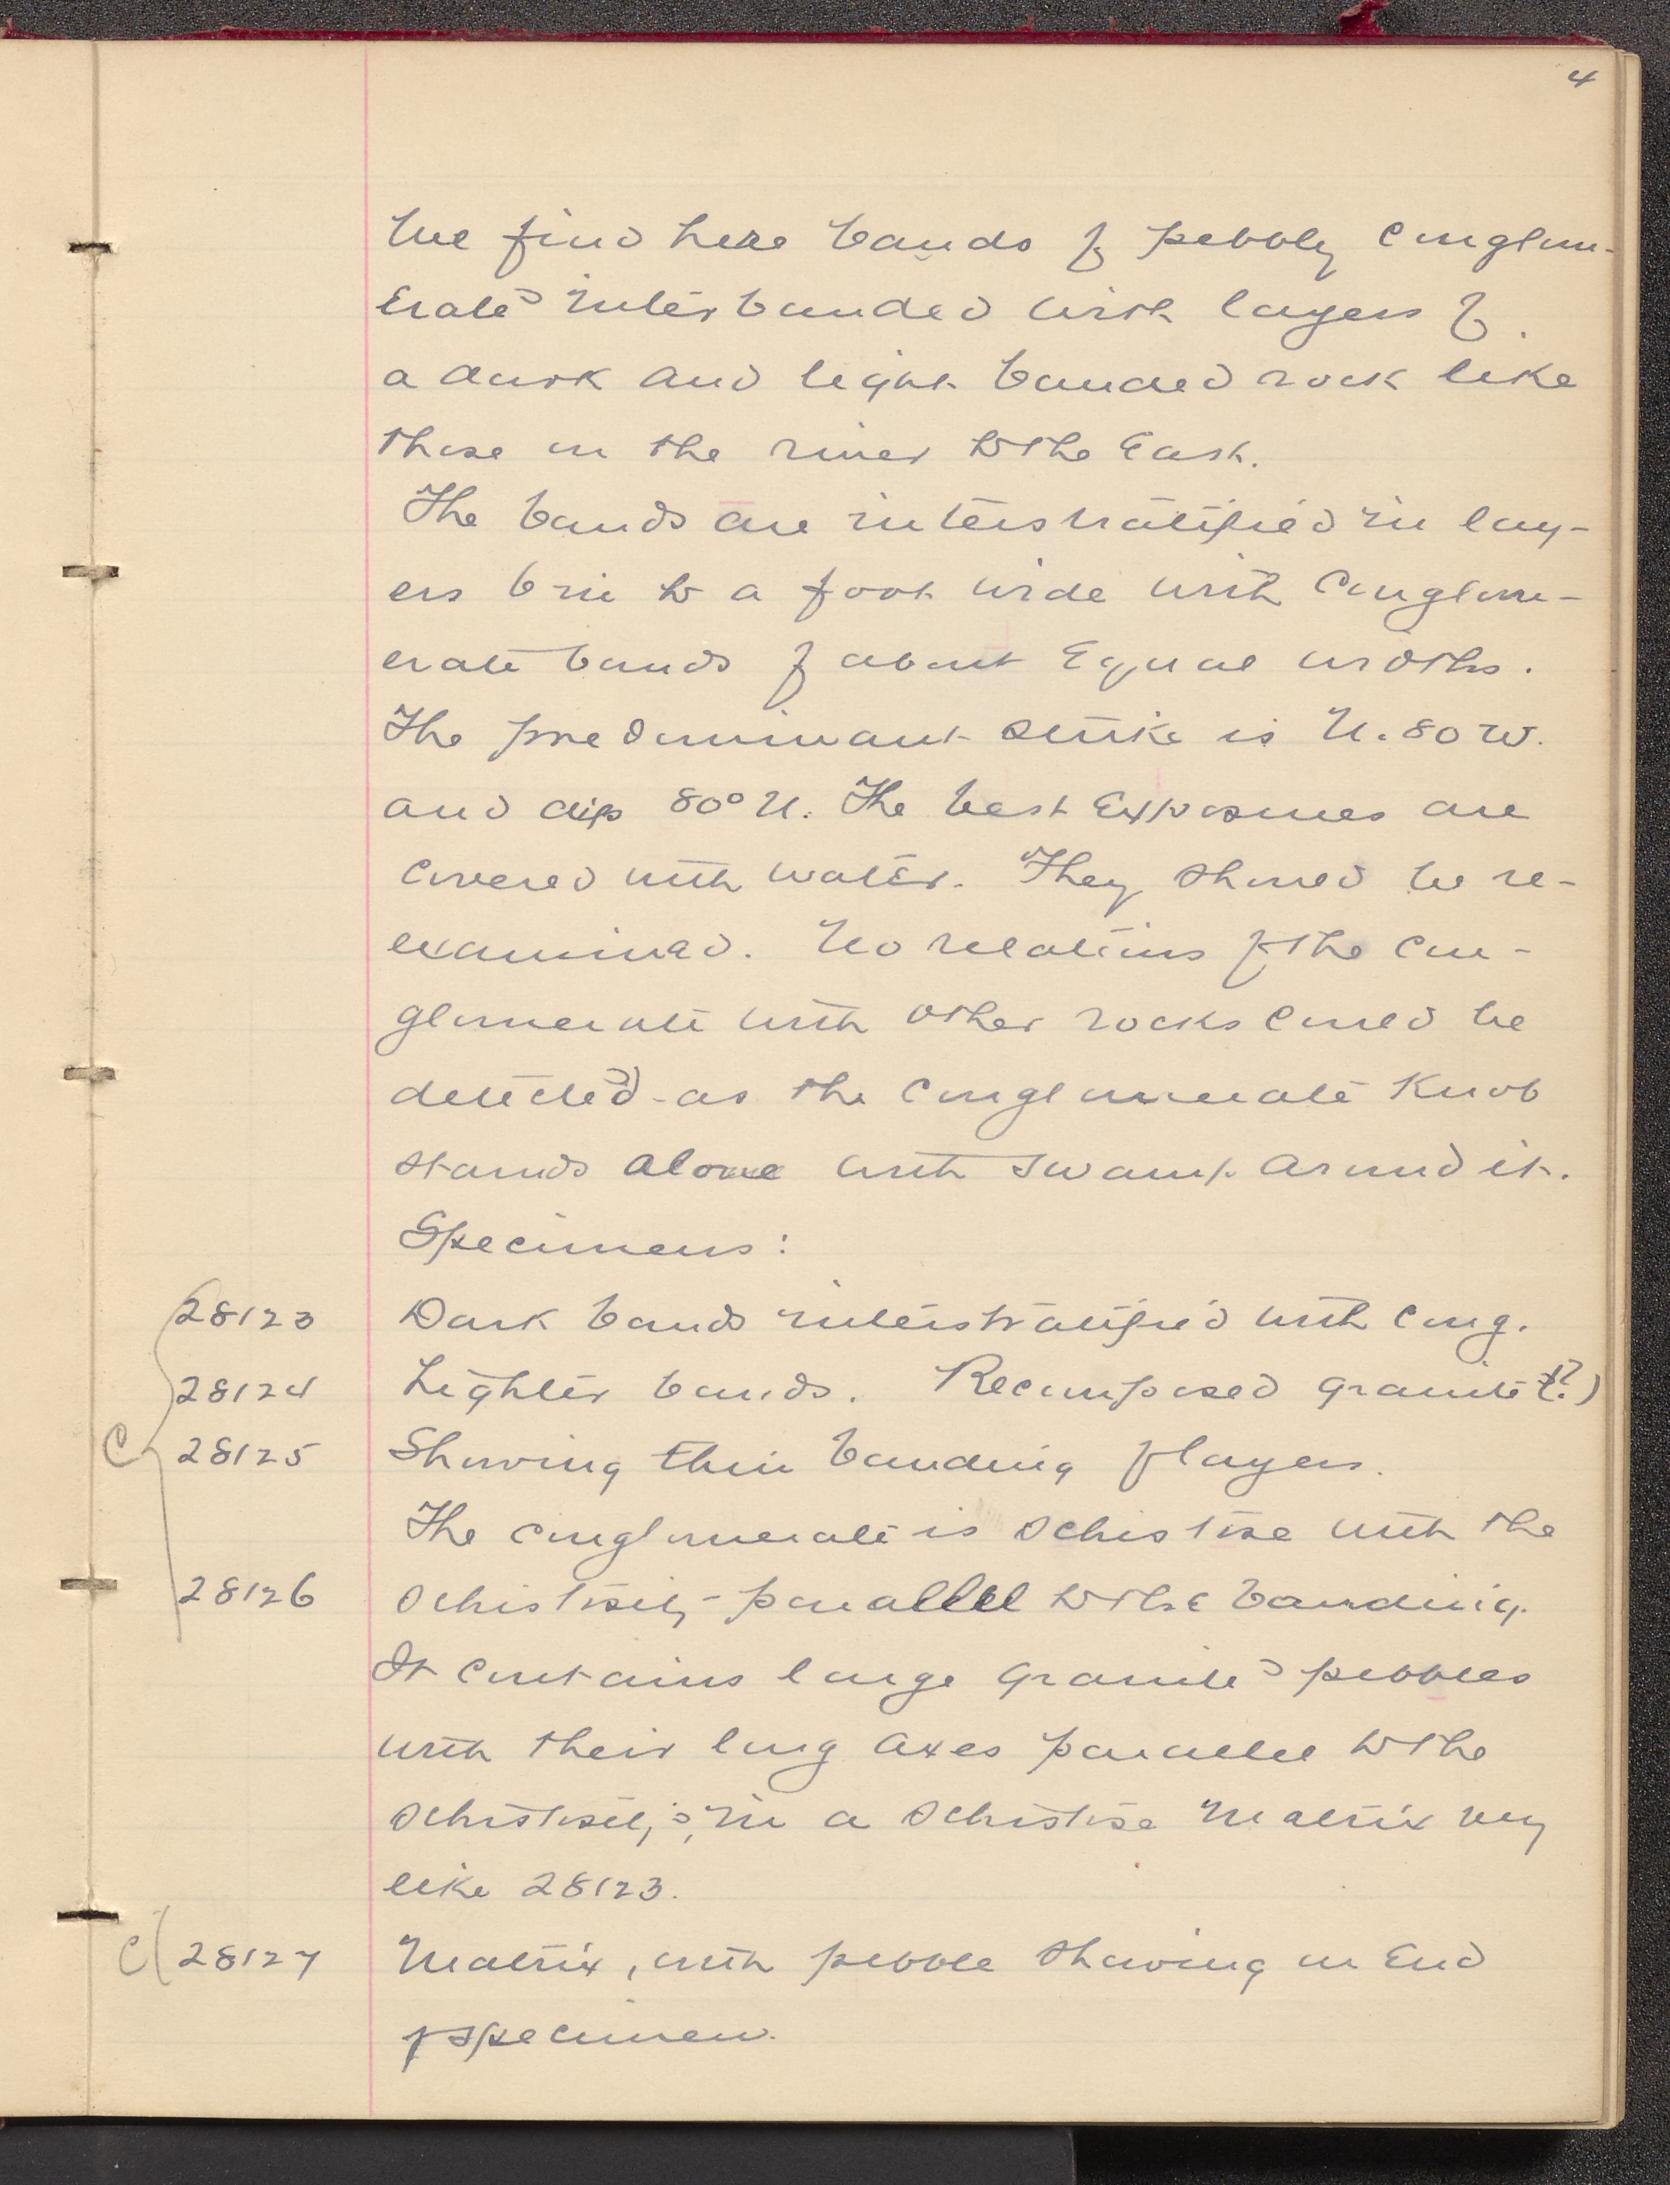 4
We find here bands of pebbly conglom-
erate interbanded with layers of
a dark and light banded rock like
those in the river to the east.
The bands are interstratified in lay-
ers 6 in to a foot wide with conglom-
erate bands of about equal widths.
The predominant strike is N. 80 W.
and dip 80° N. The best exposures are
covered with water. They should be re-
examined. No relations of the con-
glomerate with other rocks could be
detected - as the conglomerate knob
stands alone with swamp around it.
Specimens:
28123 Dark bands interstratified with cong.
28124 Lighter bands. Recomposed granite (?)
C 28125 Showing thin banding of layers.
The conglomerate is schistose with the
28126 schistosity parallel to the banding.
It contains large granite pebbles
with their long axes parallel to the
schistosity, in a schistose matrix very
like 28123.
C 28127 Matrix, with pebble showing on end
of specimen.